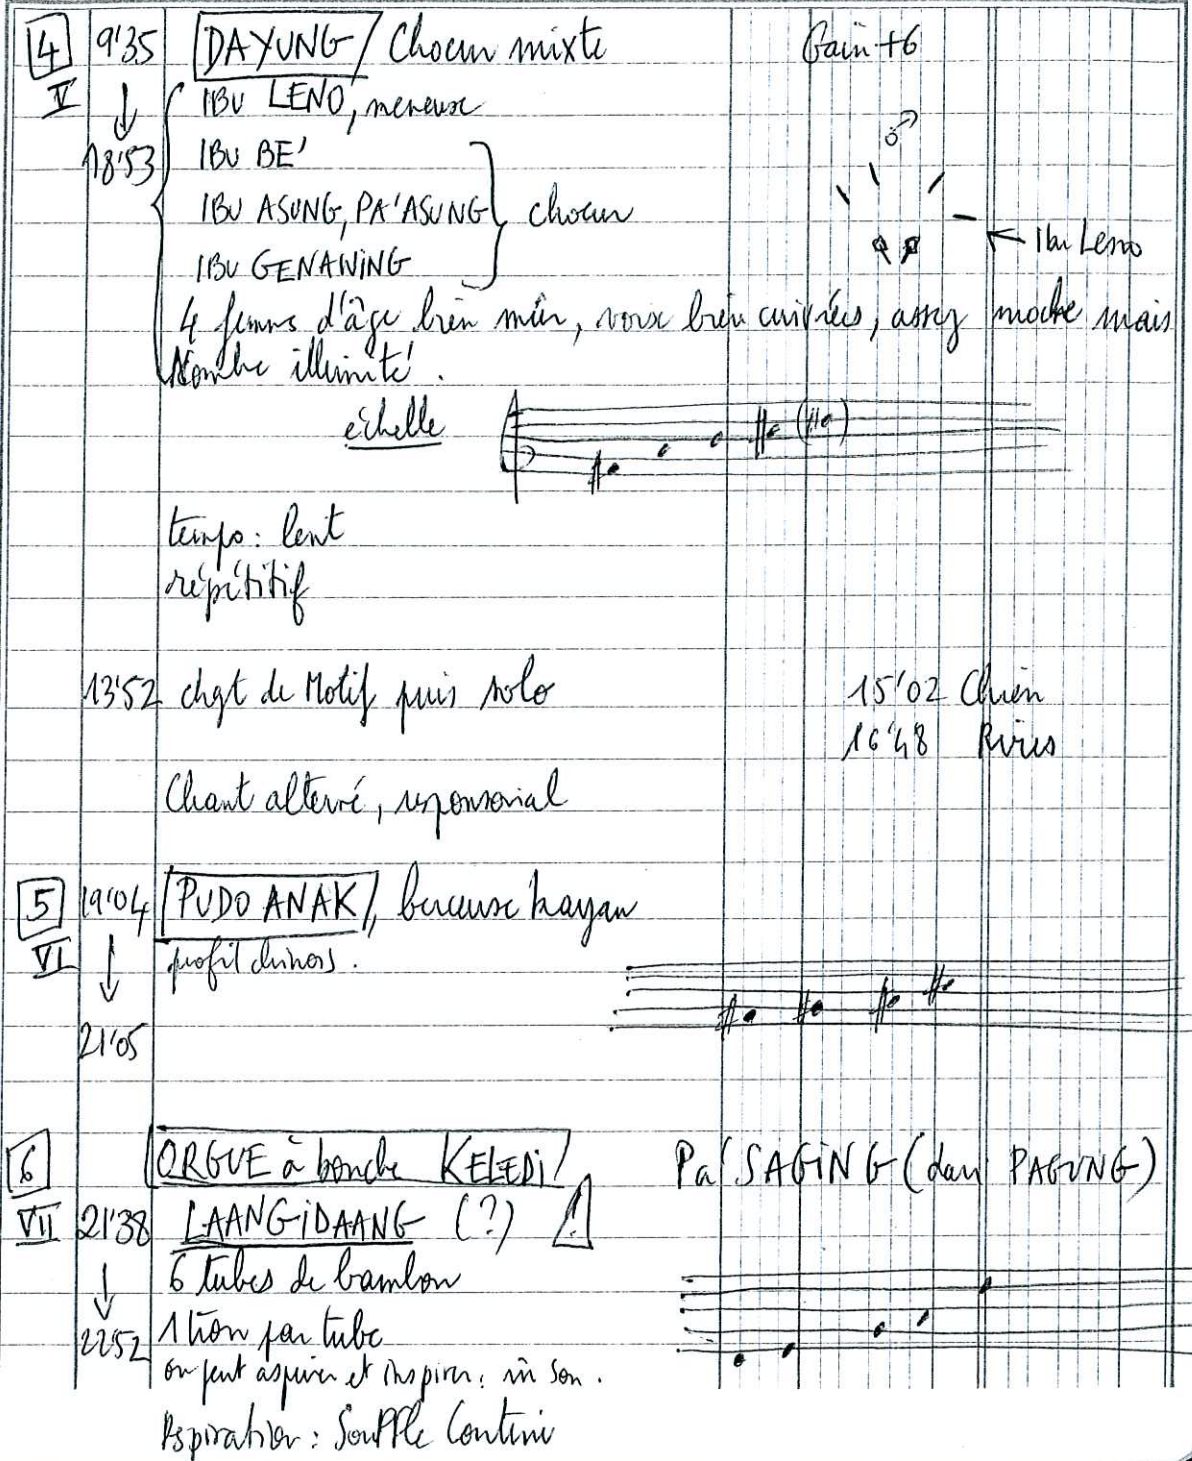 4 9'35 DAYUNG / Choeur mixte Gain +6
V IBU LENO, meneuse
♂
18'53 IBU BE'
IBU ASUNG, PA'ASUNG choeur
← Ibu Leno
IBU GENAWING
4 femmes d'âge bien mûr, voix bien cuivrées, assez moche mais
Nombre illimité.
échelle
tempo : lent
répétitif
13'52 chgt de Motif puis solo 15'02 Chien
16'48 Rires
Chant alterné, responsorial
5 19'04 PUDO ANAK /, berceuse kayan
VI profil chinois.
21'05
6 ORGUE à bouche KELEDI / Pa' SAGING (dari PAGUNG)
VII 21'38 LAANGiDAANG (?) !
6 tubes de bambou
22'52 1 trou par tube
on peut aspirer et inspirer : m̂ son.
Respiration : Souffle Continu